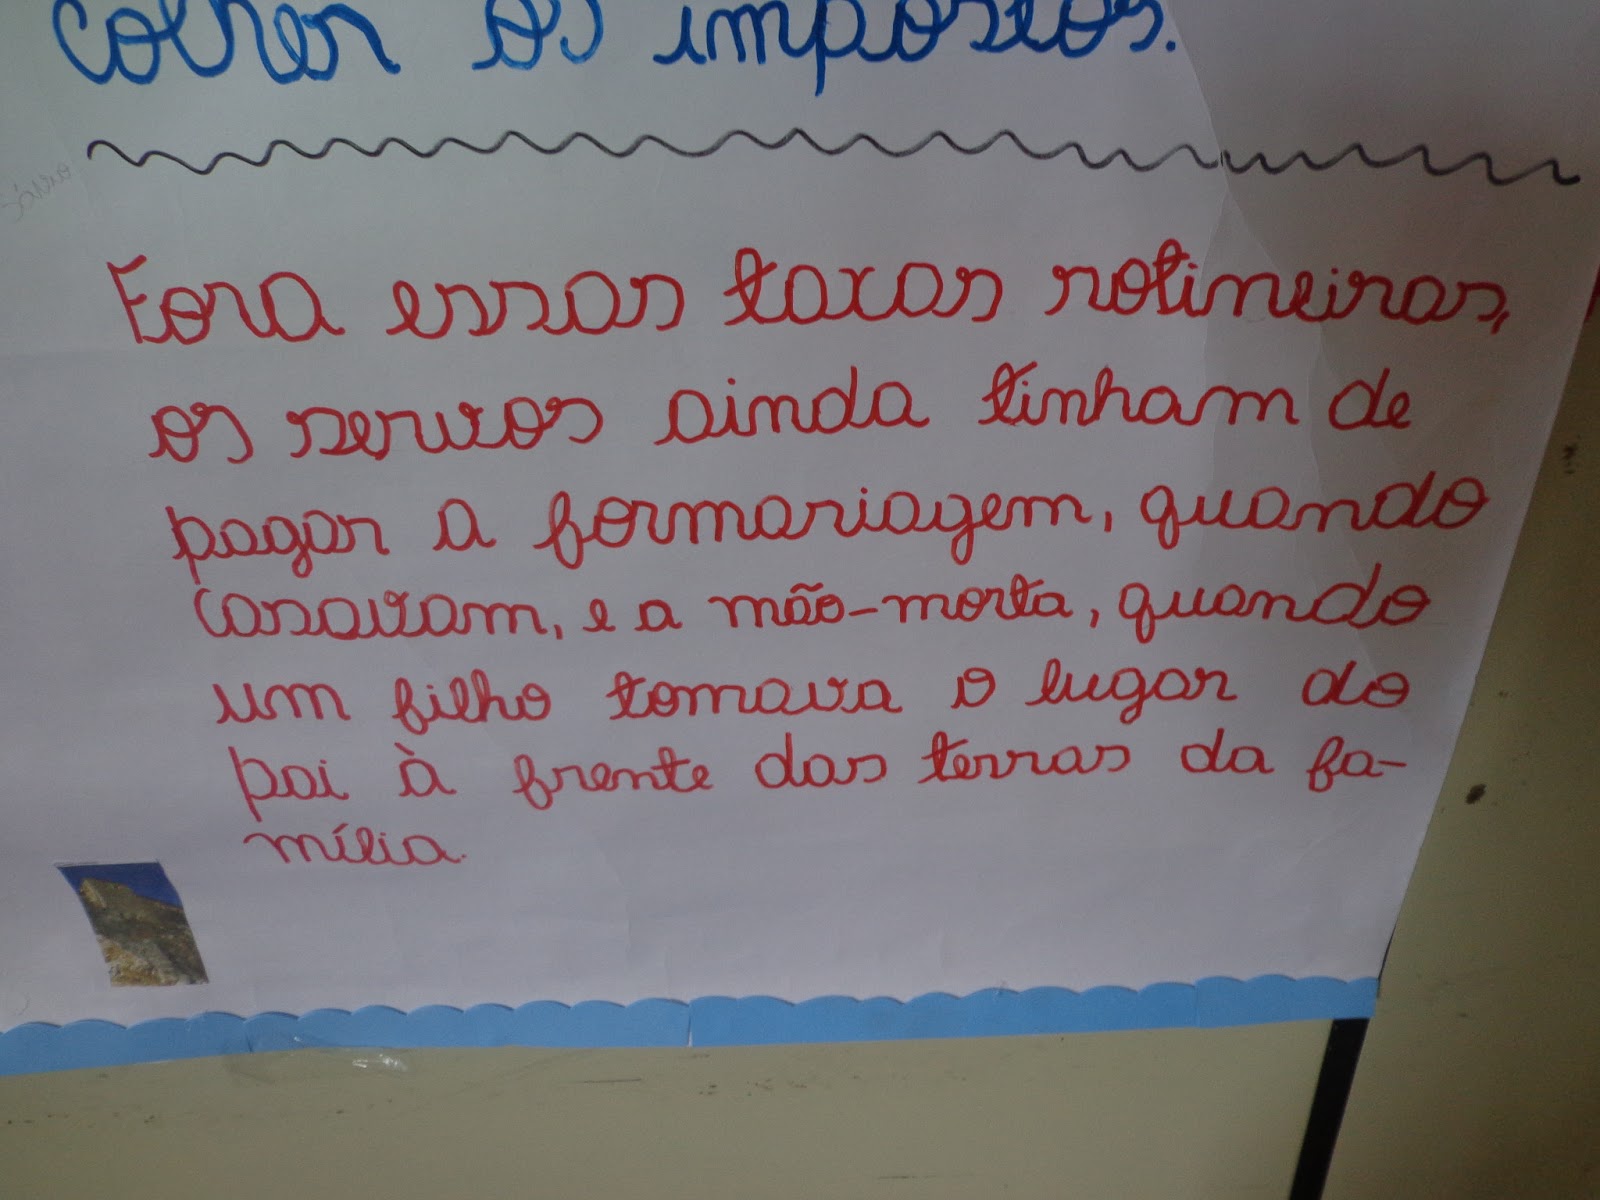 colher os impostos.
Fora essas taxas rotineiras,
os servos ainda tinham de
pagar a formariagem, quando
casavam, e a mão-morta, quando
um filho tomava o lugar do
pai à frente das terras da fa-
mília.